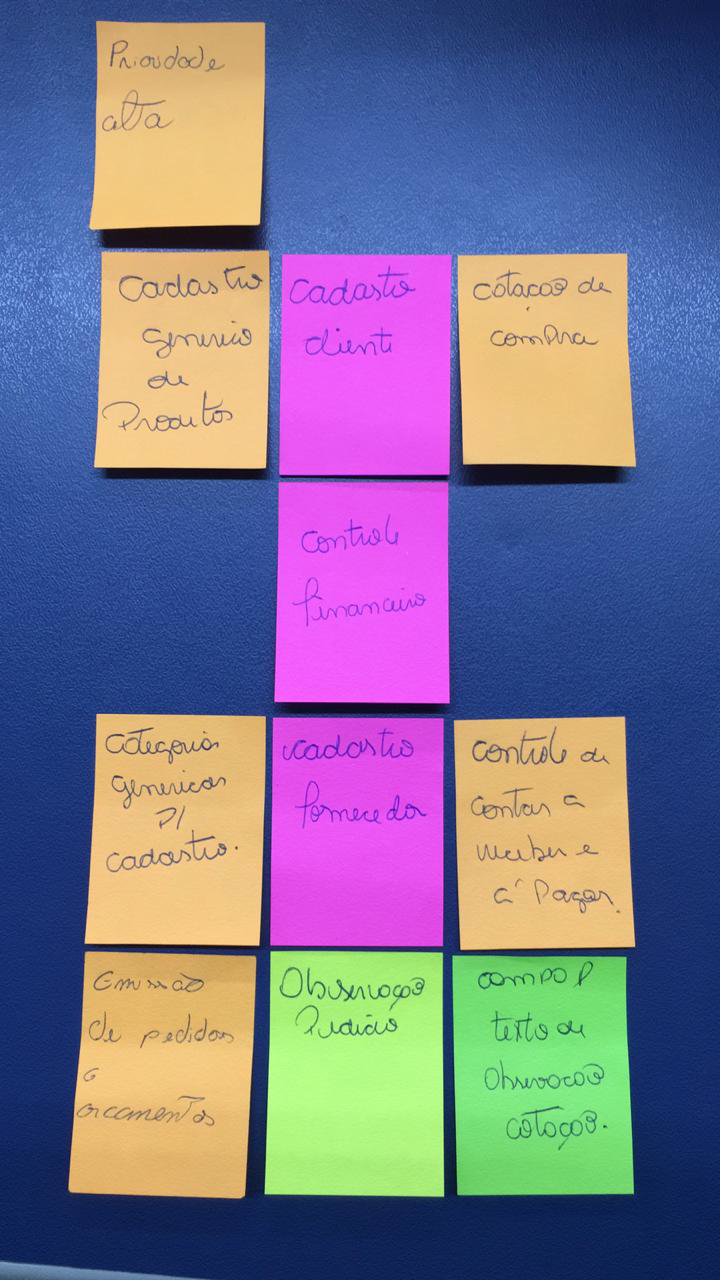 Prioridade
alta
Cadastro
generico
de
Produtos
Cadastro
cliente
cotação de
compra
controle
financeiro
Categorias
genericas
p/
cadastro.
cadastro
fornecedor
controle de
contas a
receber e
a Pagar.
Emissão
de pedidos
e
orcamentos
Observação
campo p
texto de
Observação
cotação.